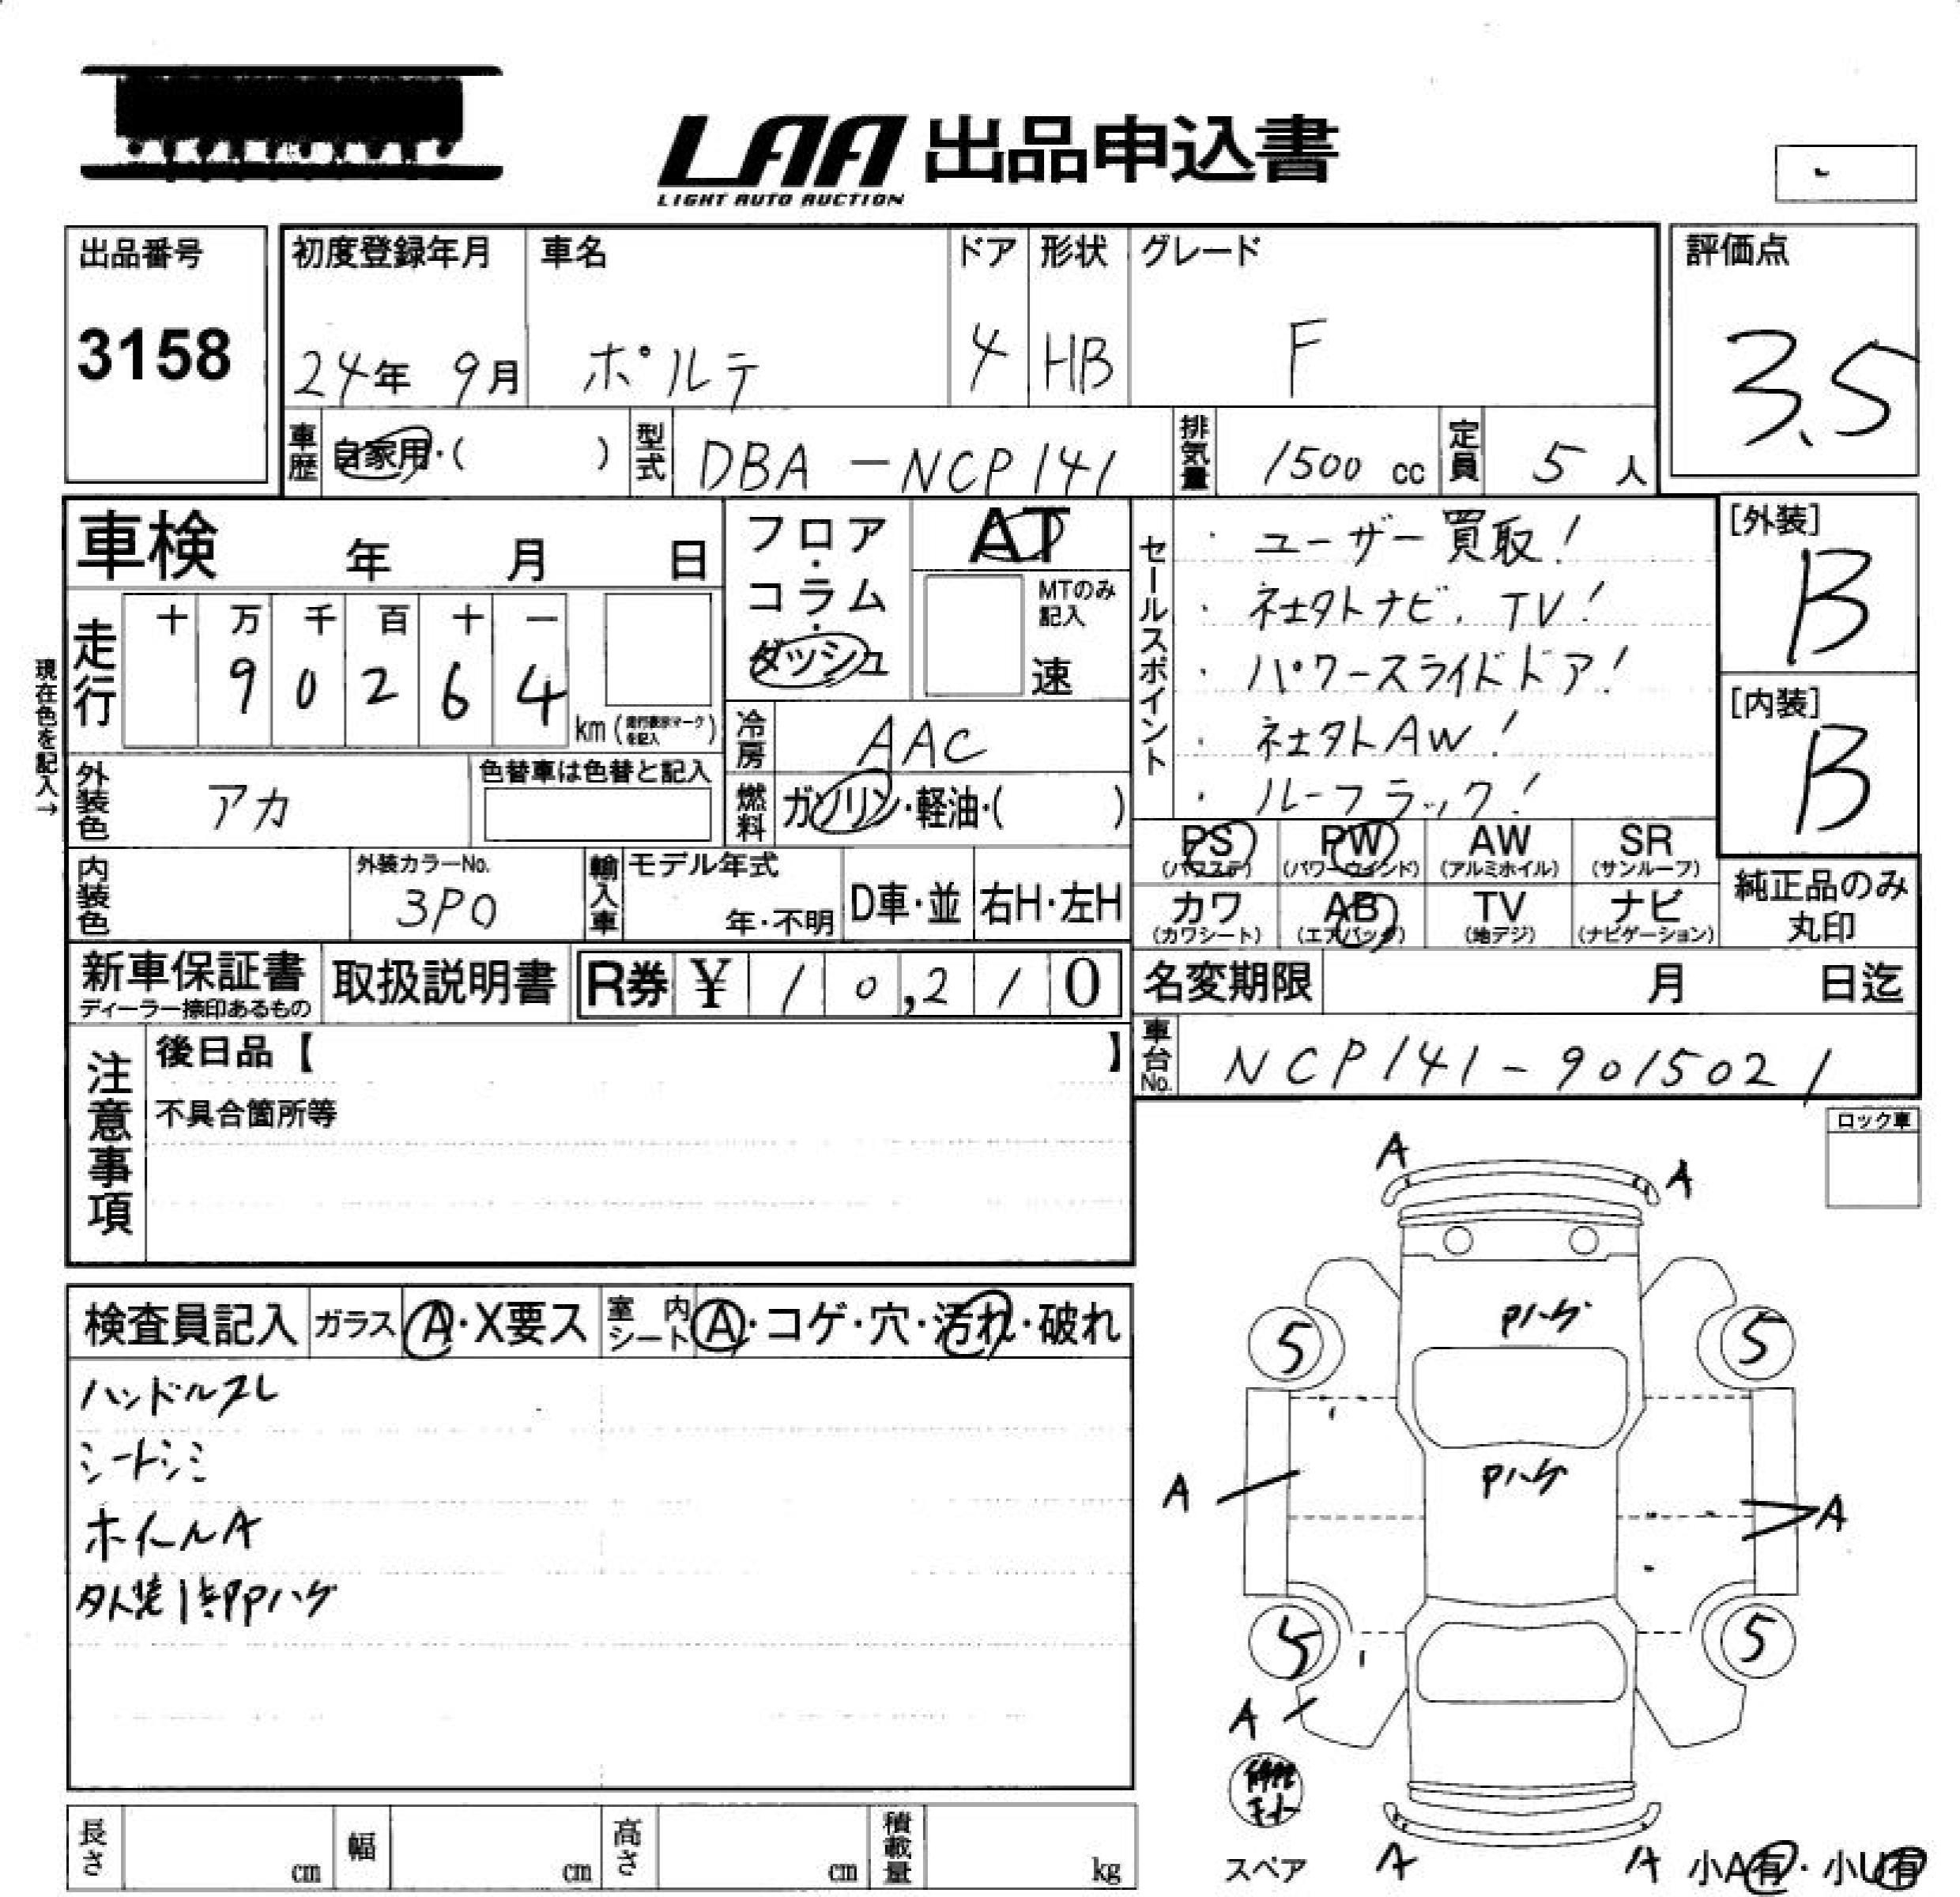 LAA 出品申込書
LIGHT AUTO AUCTION
出品番号
3158
初度登録年月
24年 9月
車名
ポルテ
ドア
4
形状
HB
グレード
F
評価点
3.5
車歴
自家用・( )
型式
DBA-NCP141
排気量
1500 cc
定員
5 人
車検 年 月 日
フロア・コラム・ダッシュ
AT
MTのみ記入
速
セールスポイント
・ユーザー買取!
・社外ナビ、TV!
・パワースライドドア!
・社外AW!
・ルーフラック!
[外装]
B
[内装]
B
現在色を記入→
走行
十 万 千 百 十 一
9 0 2 6 4
km (走行表示マークを記入)
冷房
AAC
燃料
ガソリン・軽油・( )
外装色
アカ
色替車は色替と記入
内装色
外装カラーNo.
3P0
輸入車
モデル年式
年・不明
D車・並
右H・左H
PS
(パワステ)
PW
(パワーウィンド)
AW
(アルミホイル)
SR
(サンルーフ)
カワ
(カワシート)
AB
(エアバッグ)
TV
(地デジ)
ナビ
(ナビゲーション)
純正品のみ
丸印
新車保証書
ディーラー捺印あるもの
取扱説明書
R券 ¥ 10,210
名変期限 月 日迄
車台No.
NCP141-9015021
注意事項
後日品【 】
不具合箇所等
ロック車
検査員記入
ガラス
A・X要ス
室内シート
A・コゲ・穴・汚れ・破れ
ハンドルスレ
シートシミ
ホイールA
外装1部Pハゲ
A
A
Pハゲ
5
5
Pハゲ
A
A
5
5
A
スペア
A
A
小A有・小U有
長さ cm
幅 cm
高さ cm
積載量 kg